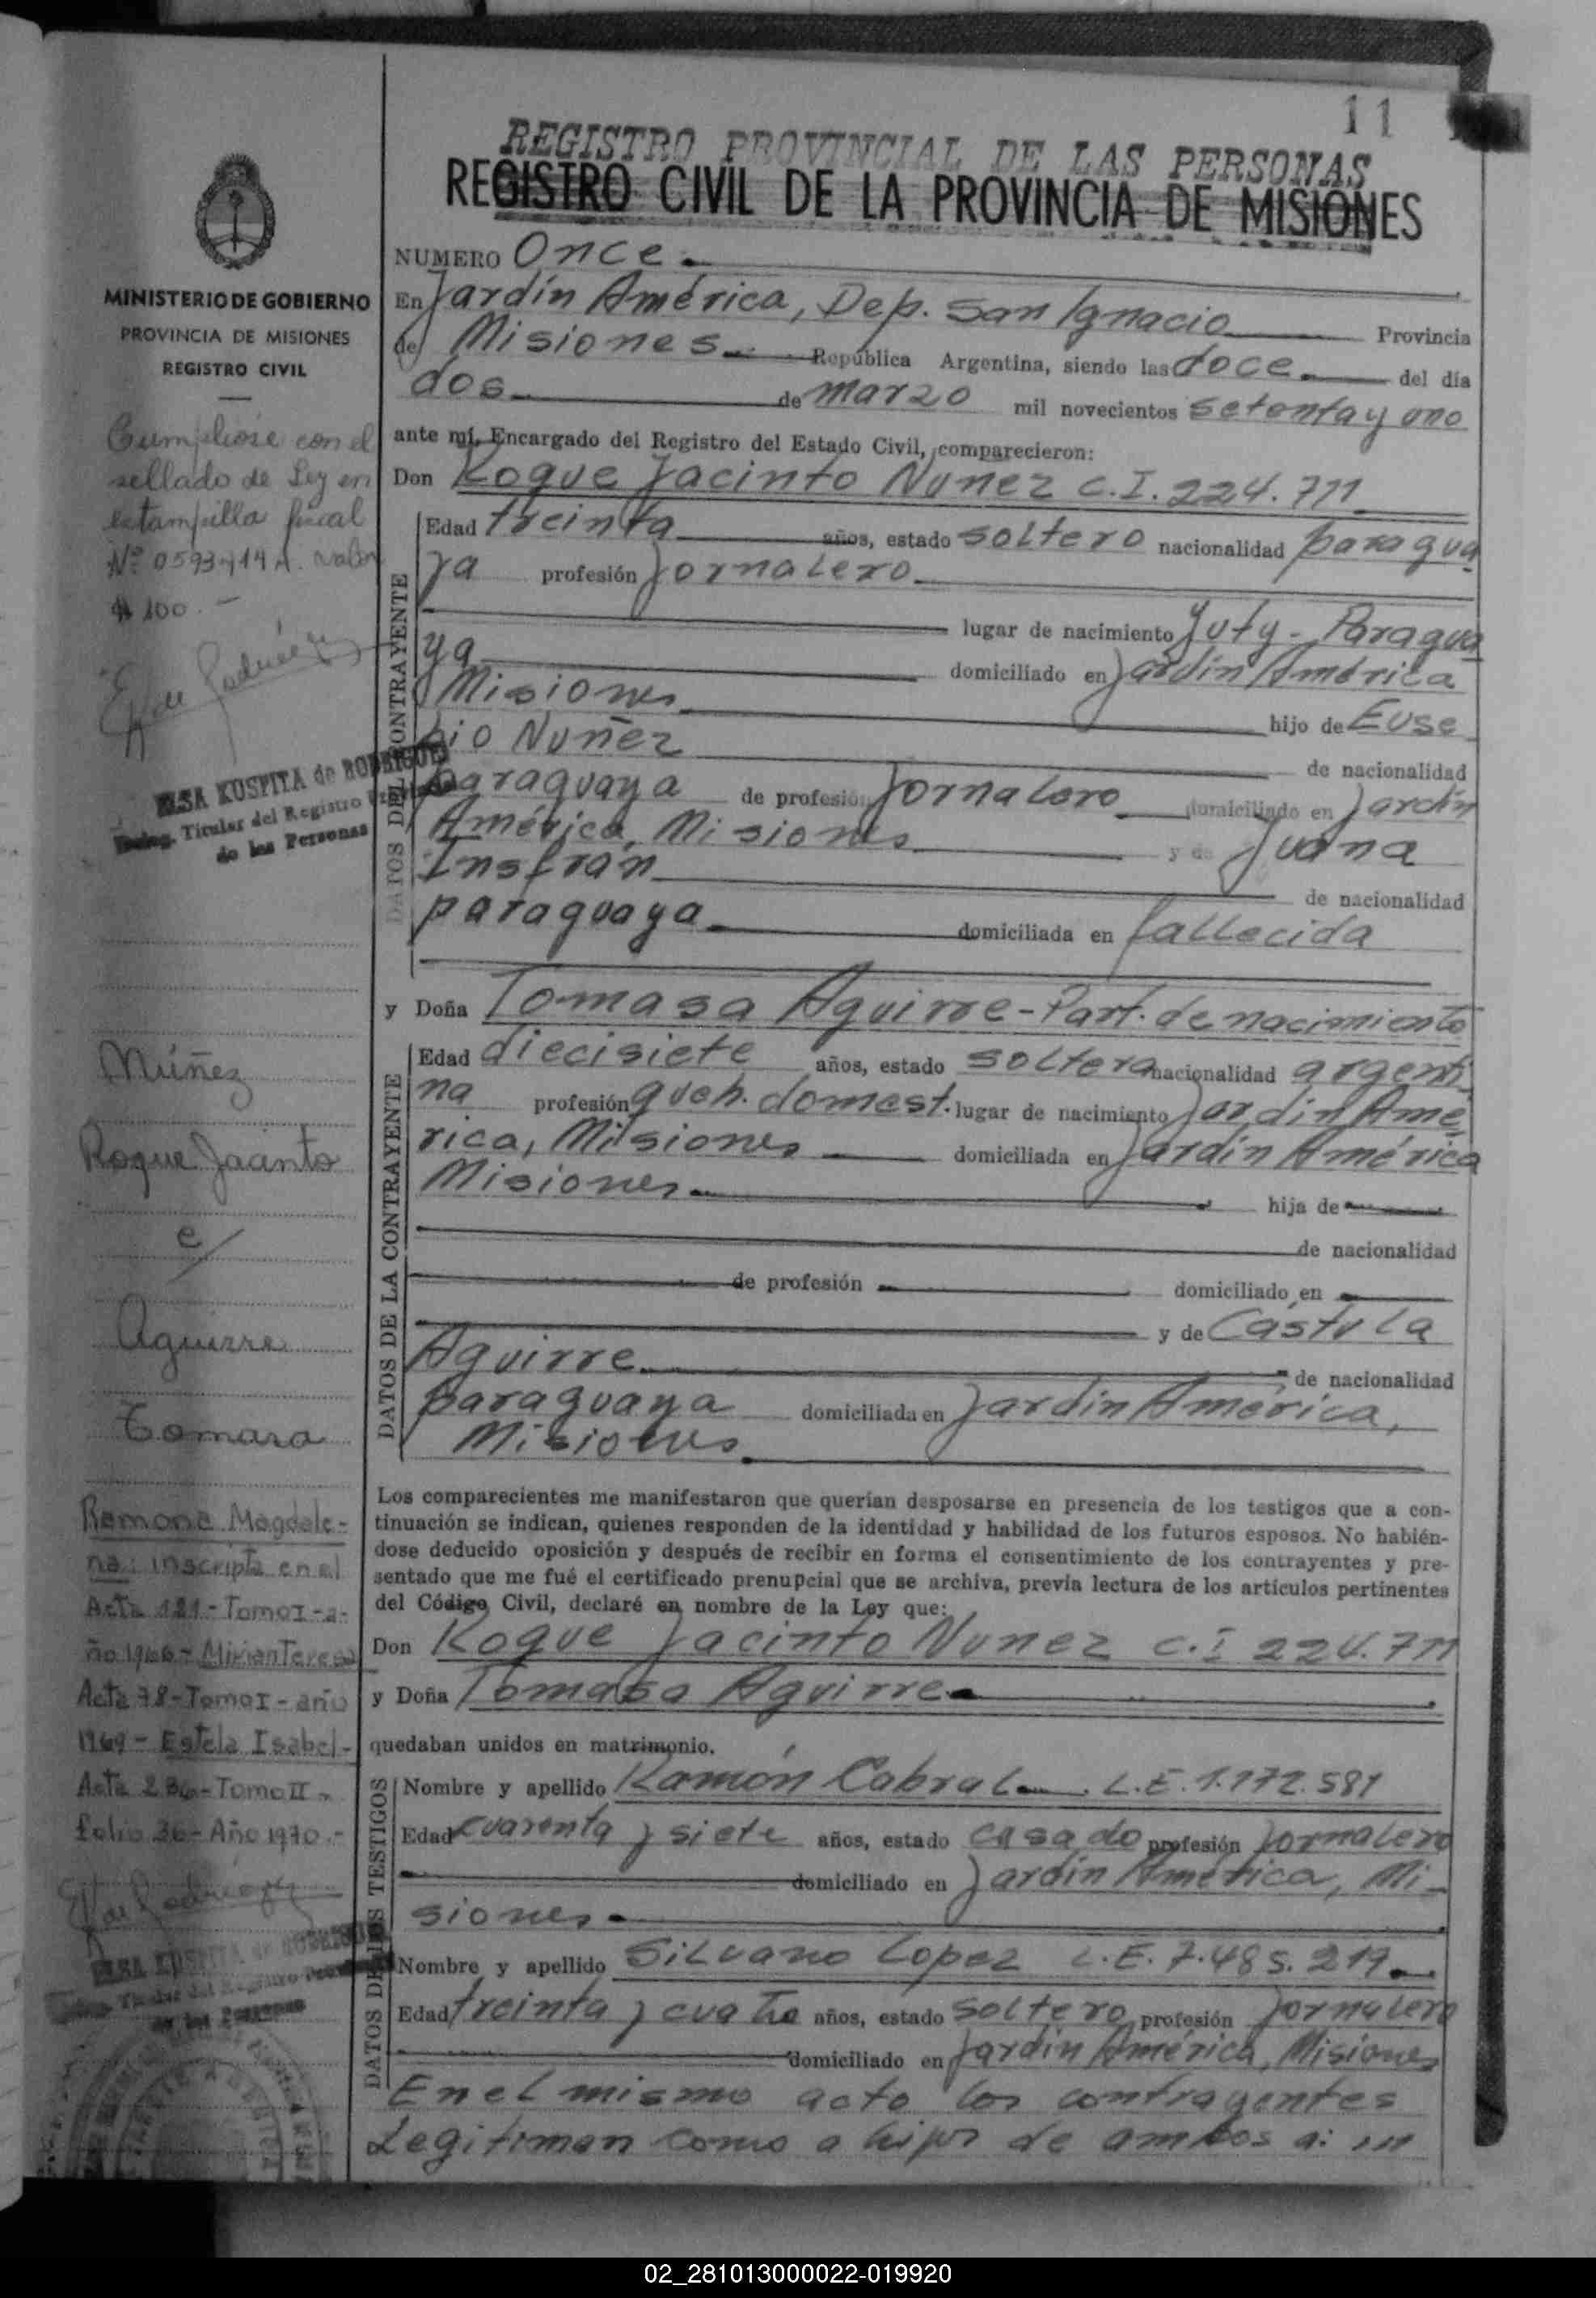 11
REGISTRO PROVINCIAL DE LAS PERSONAS
REGISTRO CIVIL DE LA PROVINCIA DE MISIONES
MINISTERIO DE GOBIERNO
PROVINCIA DE MISIONES
REGISTRO CIVIL
Cumpliose con el
sellado de Ley en
estampilla fiscal
Nº 0593414 A. valor
$ 100.-
ELSA KUSPITA de RODRIGUEZ
Encarg. Titular del Registro Provincial
de las Personas
Núñez
Roque Jacinto
c/
Aguirre
Tomasa
Ramona Magdale-
na: inscripta en el
Acta 121-Tomo I-a-
ño 1966- Mirian Teresa
Acta 78-Tomo I-año
1969- Estela Isabel-
Acta 236-Tomo II-
folio 36-Año 1970.-
ELSA KUSPITA de RODRIGUEZ
Encarg. Titular del Registro Provincial
de las Personas
NUMERO Once.
En Jardín América, Dep. San Ignacio Provincia
de Misiones República Argentina, siendo las doce del día
dos de marzo mil novecientos setenta y uno
ante mí, Encargado del Registro del Estado Civil, comparecieron:
Don Roque Jacinto Nuñez C.I. 224.711
DATOS DEL CONTRAYENTE
Edad treinta años, estado soltero nacionalidad paragua
ya profesión Jornalero
lugar de nacimiento Yuty - Paragua
ya domiciliado en Jardín América
Misiones hijo de Euse
bio Nuñez de nacionalidad
paraguaya de profesión Jornalero domiciliado en Jardín
América, Misiones y de Juana
Insfrán de nacionalidad
paraguaya domiciliada en fallecida
y Doña Tomasa Aguirre-Part. de nacimiento
DATOS DE LA CONTRAYENTE
Edad diecisiete años, estado soltera nacionalidad argenti
na profesión queh. domest. lugar de nacimiento Jardín Amé
rica, Misiones domiciliada en Jardín América
Misiones hija de
de nacionalidad
de profesión domiciliado en
y de Cástula
Aguirre de nacionalidad
paraguaya domiciliada en Jardín América,
Misiones
Los comparecientes me manifestaron que querían desposarse en presencia de los testigos que a con-
tinuación se indican, quienes responden de la identidad y habilidad de los futuros esposos. No habién-
dose deducido oposición y después de recibir en forma el consentimiento de los contrayentes y pre-
sentado que me fué el certificado prenupcial que se archiva, previa lectura de los artículos pertinentes
del Código Civil, declaré en nombre de la Ley que:
Don Roque Jacinto Nuñez C.I 224.711
y Doña Tomasa Aguirre
quedaban unidos en matrimonio.
DATOS DE LOS TESTIGOS
Nombre y apellido Ramón Cabral L.E. 1.172.581
Edad cuarenta y siete años, estado casado profesión Jornalero
domiciliado en Jardín América, Mi-
siones
Nombre y apellido Silvano Lopez L.E. 7.485.219
Edad treinta y cuatro años, estado soltero profesión Jornalero
domiciliado en Jardín América, Misiones
En el mismo acto los contrayentes
Legitiman como a hijos de ambos a:
02_281013000022-019920